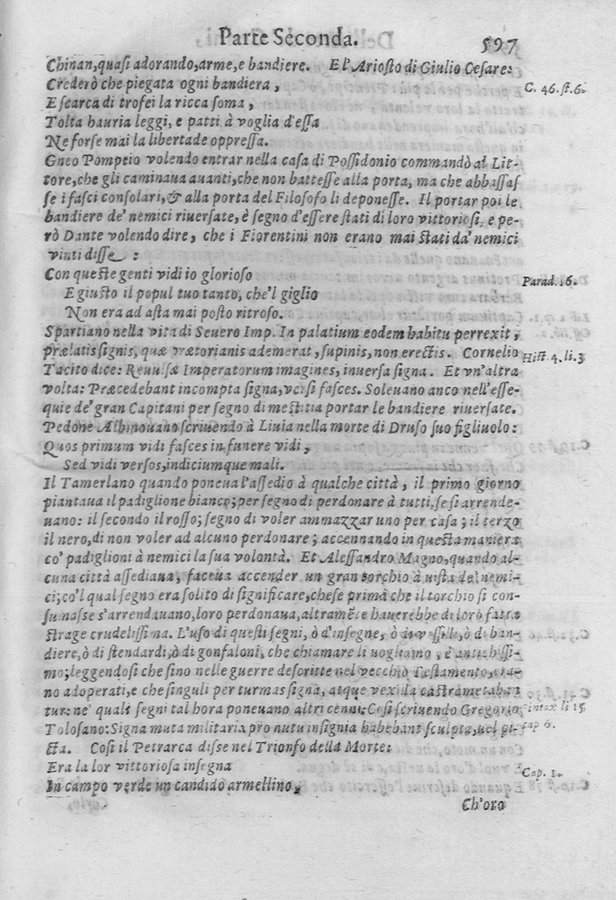 Parte Seconda. 597
Chinan, quasi adorando, arme, e bandiere. E l'Ariosto di Giulio Cesare:
Crederò che piegata ogni bandiera, C. 46. st. 6.
E scarca di trofei la ricca soma,
Tolta hauria leggi, e patti à voglia d'essa
Ne forse mai la libertade oppressa.
Gneo Pompeio volendo entrar nella casa di Possidonio commandò al Lit-
tore, che gli caminaua auanti, che non battesse alla porta, ma che abbassas
se i fasci consolari, & alla porta del Filosofo li deponesse. Il portar poi le
bandiere de' nemici riuersate, è segno d'essere stati di loro vittoriosi, e pe-
rò Dante volendo dire, che i Fiorentini non erano mai stati da' nemici
vinti disse :
Con queste genti vidi io glorioso Parad. 16.
E giusto il popul tuo tanto, che'l giglio
Non era ad asta mai posto ritroso.
Spartiano nella vita di Seuero Imp. In palatium eodem habitu perrexit,
prælatis signis, quæ prætorianis ademerat, supinis, non erectis. Cornelio Hist. 4. li. 3
Tacito dice: Reuulsæ Imperatorum imagines, inuersa signa. Et vn'altra
volta: Præcedebant incompta signa, versi fasces. Soleuano anco nell'esse-
quie de' gran Capitani per segno di mestitia portar le bandiere riuersate.
Pedone Albinouano scriuendo à Liuia nella morte di Druso suo figliuolo:
Quos primum vidi fasces in funere vidi,
Sed vidi versos, indiciumque mali.
Il Tamerlano quando poneua l'assedio à qualche città, il primo giorno
piantaua il padiglione bianco; per segno di perdonare à tutti, se si arrende-
uano: il secondo il rosso; segno di voler ammazzar uno per casa; il terzo
il nero, di non voler ad alcuno perdonare; accennando in questa maniera
co' padiglioni à nemici la sua volontà. Et Alessandro Magno, quando al-
cuna città assediaua, faceua accender un gran torchio à uista de' nemi-
ci; co'l qual segno era solito di significare, che se prima che il torchio si con-
sumasse s'arrendauano, loro perdonaua, altramẽte hauerebbe di loro fatta
strage crudelissima. L'uso di questi segni, ò d'insegne, ò di vessilli, ò di ban-
diere, ò di stendardi, ò di gonfaloni, che chiamare li uogliamo, è antichissi-
mo; leggendosi che sino nelle guerre descritte nel vecchio Testamento, era-
no adoperati, e che singuli per turmas signa, atque vexilla castrametaban
tur. ne' quali segni tal hora poneuano altri cenni: Così scriuendo Gregorio li 15
Tolosano: Signa muta militaria pro nutu insignia habebant sculpta, uel pi- cap 6.
cta. Così il Petrarca disse nel Trionfo della Morte:
Era la lor vittoriosa insegna Cap. 1.
In campo verde un candido armellino,
Ch'oro